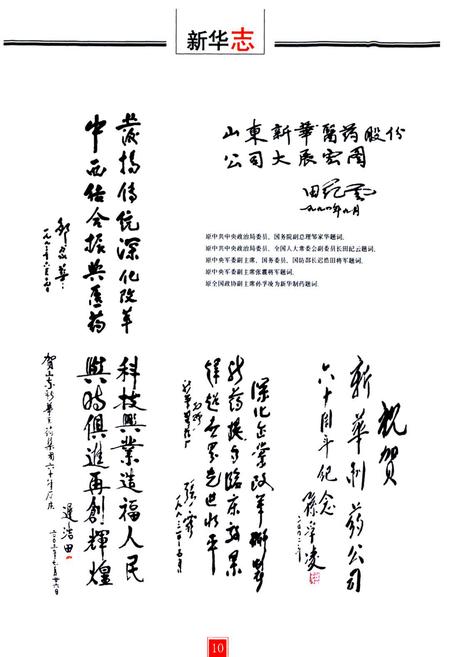 新华志
发扬传统深化改革
中西结合振兴医药
邹家华
山東新華醫药股份
公司大展宏图
田纪云
一九九八年八月
原中共中央政治局委员、国务院副总理邹家华题词。
原中共中央政治局委员、全国人大常委会副委员长田纪云题词。
原中央军委副主席、国务委员、国防部长迟浩田将军题词。
原中央军委副主席张震将军题词。
原全国政协副主席孙孚凌为新华制药题词。
贺山东新华医药集团六十年厂庆
科技興業造福人民
與時俱進再創輝煌
遲浩田
二〇〇三年七月廿六日
深化企業改革研製
新药提高临床效果
祝賀
新華制药公司
六十周年纪念
孫孚凌
10